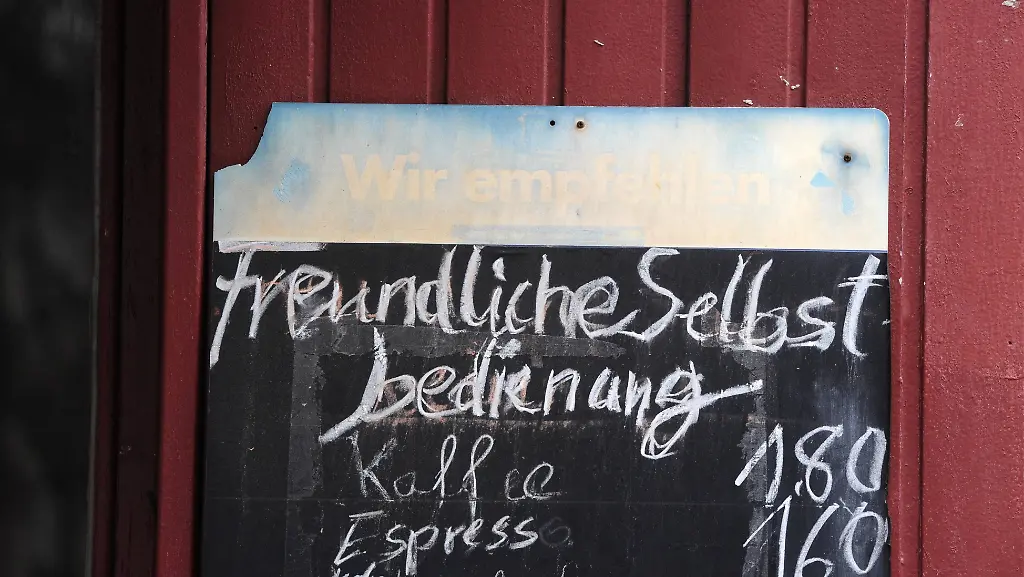 Wir empfehlen
Freundliche Selbst-
bedienung
Kaffee 1,80
Espresso 1,60